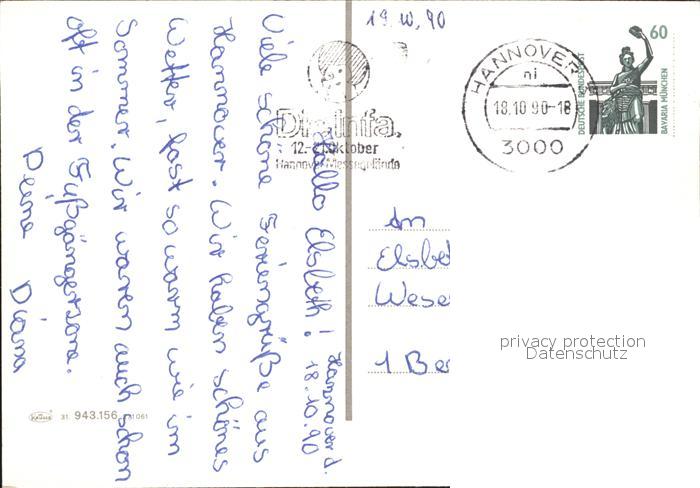 19.10.90
HANNOVER
ni
18.10.90-18
3000
60
DEUTSCHE BUNDESPOST
BAVARIA MÜNCHEN
Die Infa.
12.-21. Oktober
Hannover Messegelände
Hannover d.
18.10.90
Hallo Elsbeth!
Viele schöne Feriengrüße aus
Hannover. Wir haben schönes
Wetter, fast so warm wie im
Sommer. Wir waren auch schon
oft in der Fußgängerzone.
Deine Diana
An
Elsbet
Wese
1 Ber
privacy protection
Datenschutz
KRÜGER
31. 943.156